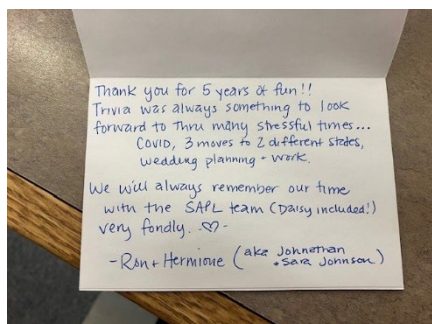 Thank you for 5 years of fun!!
Trivia was always something to look
forward to thru many stressful times...
COVID, 3 moves to 2 different states,
wedding planning + work.
We will always remember our time
with the SAPL team (Daisy included!)
very fondly. ♡-
-Ron + Hermione (aka Johnathan
+ Sara Johnson)